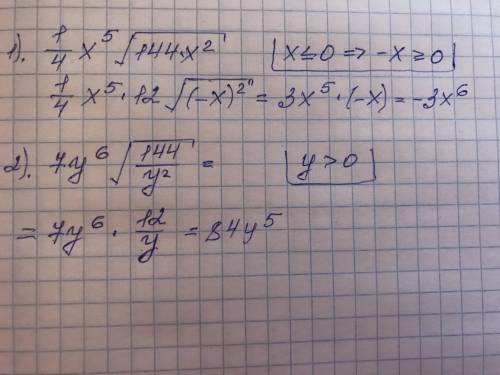 1). 1/4 x⁵ √(144·x²) x ≤ 0 => -x ≥ 0
1/4 x⁵ · 12 √((-x)²) = 3x⁵ · (-x) = -3x⁶
2). 7y⁶ √(144/y²) = y > 0
= 7y⁶ · 12/y = 84y⁵